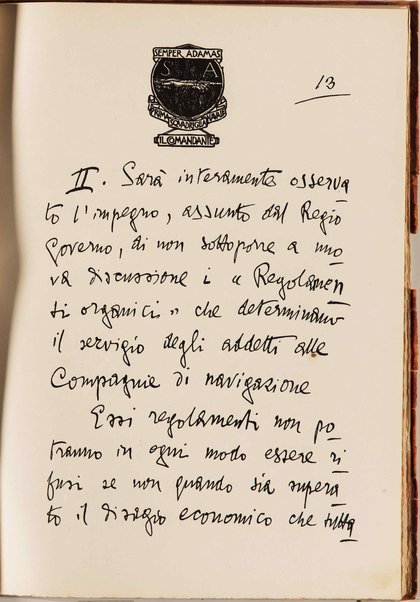 SEMPER ADAMAS
S A
IL COMANDANTE
13
II. Sarà interamente osserva
to l'impegno, assunto dal Regio
Governo, di non sottoporre a nuo
va discussione i "Regolamen
ti organici" che determinano
il servigio degli addetti alle
Compagnie di navigazione
Essi regolamenti non po
tranno in ogni modo essere ri
fusi se non quando sia supera
to il disagio economico che tutta